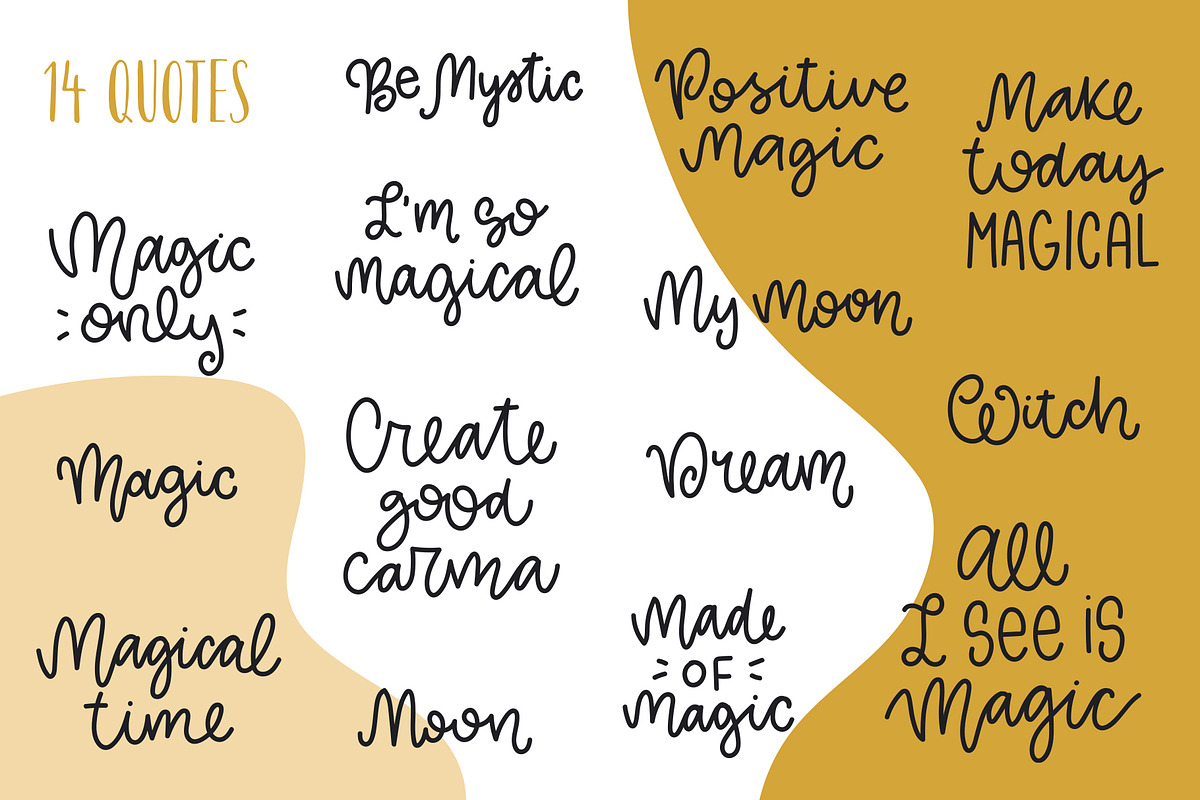 14 QUOTES
Magic
only
Magic
Magical
time
Be Mystic
I'm so
magical
Create
good
carma
Moon
Positive
Magic
My Moon
Dream
Made
OF
Magic
Make
today
MAGICAL
Witch
All
I see is
Magic